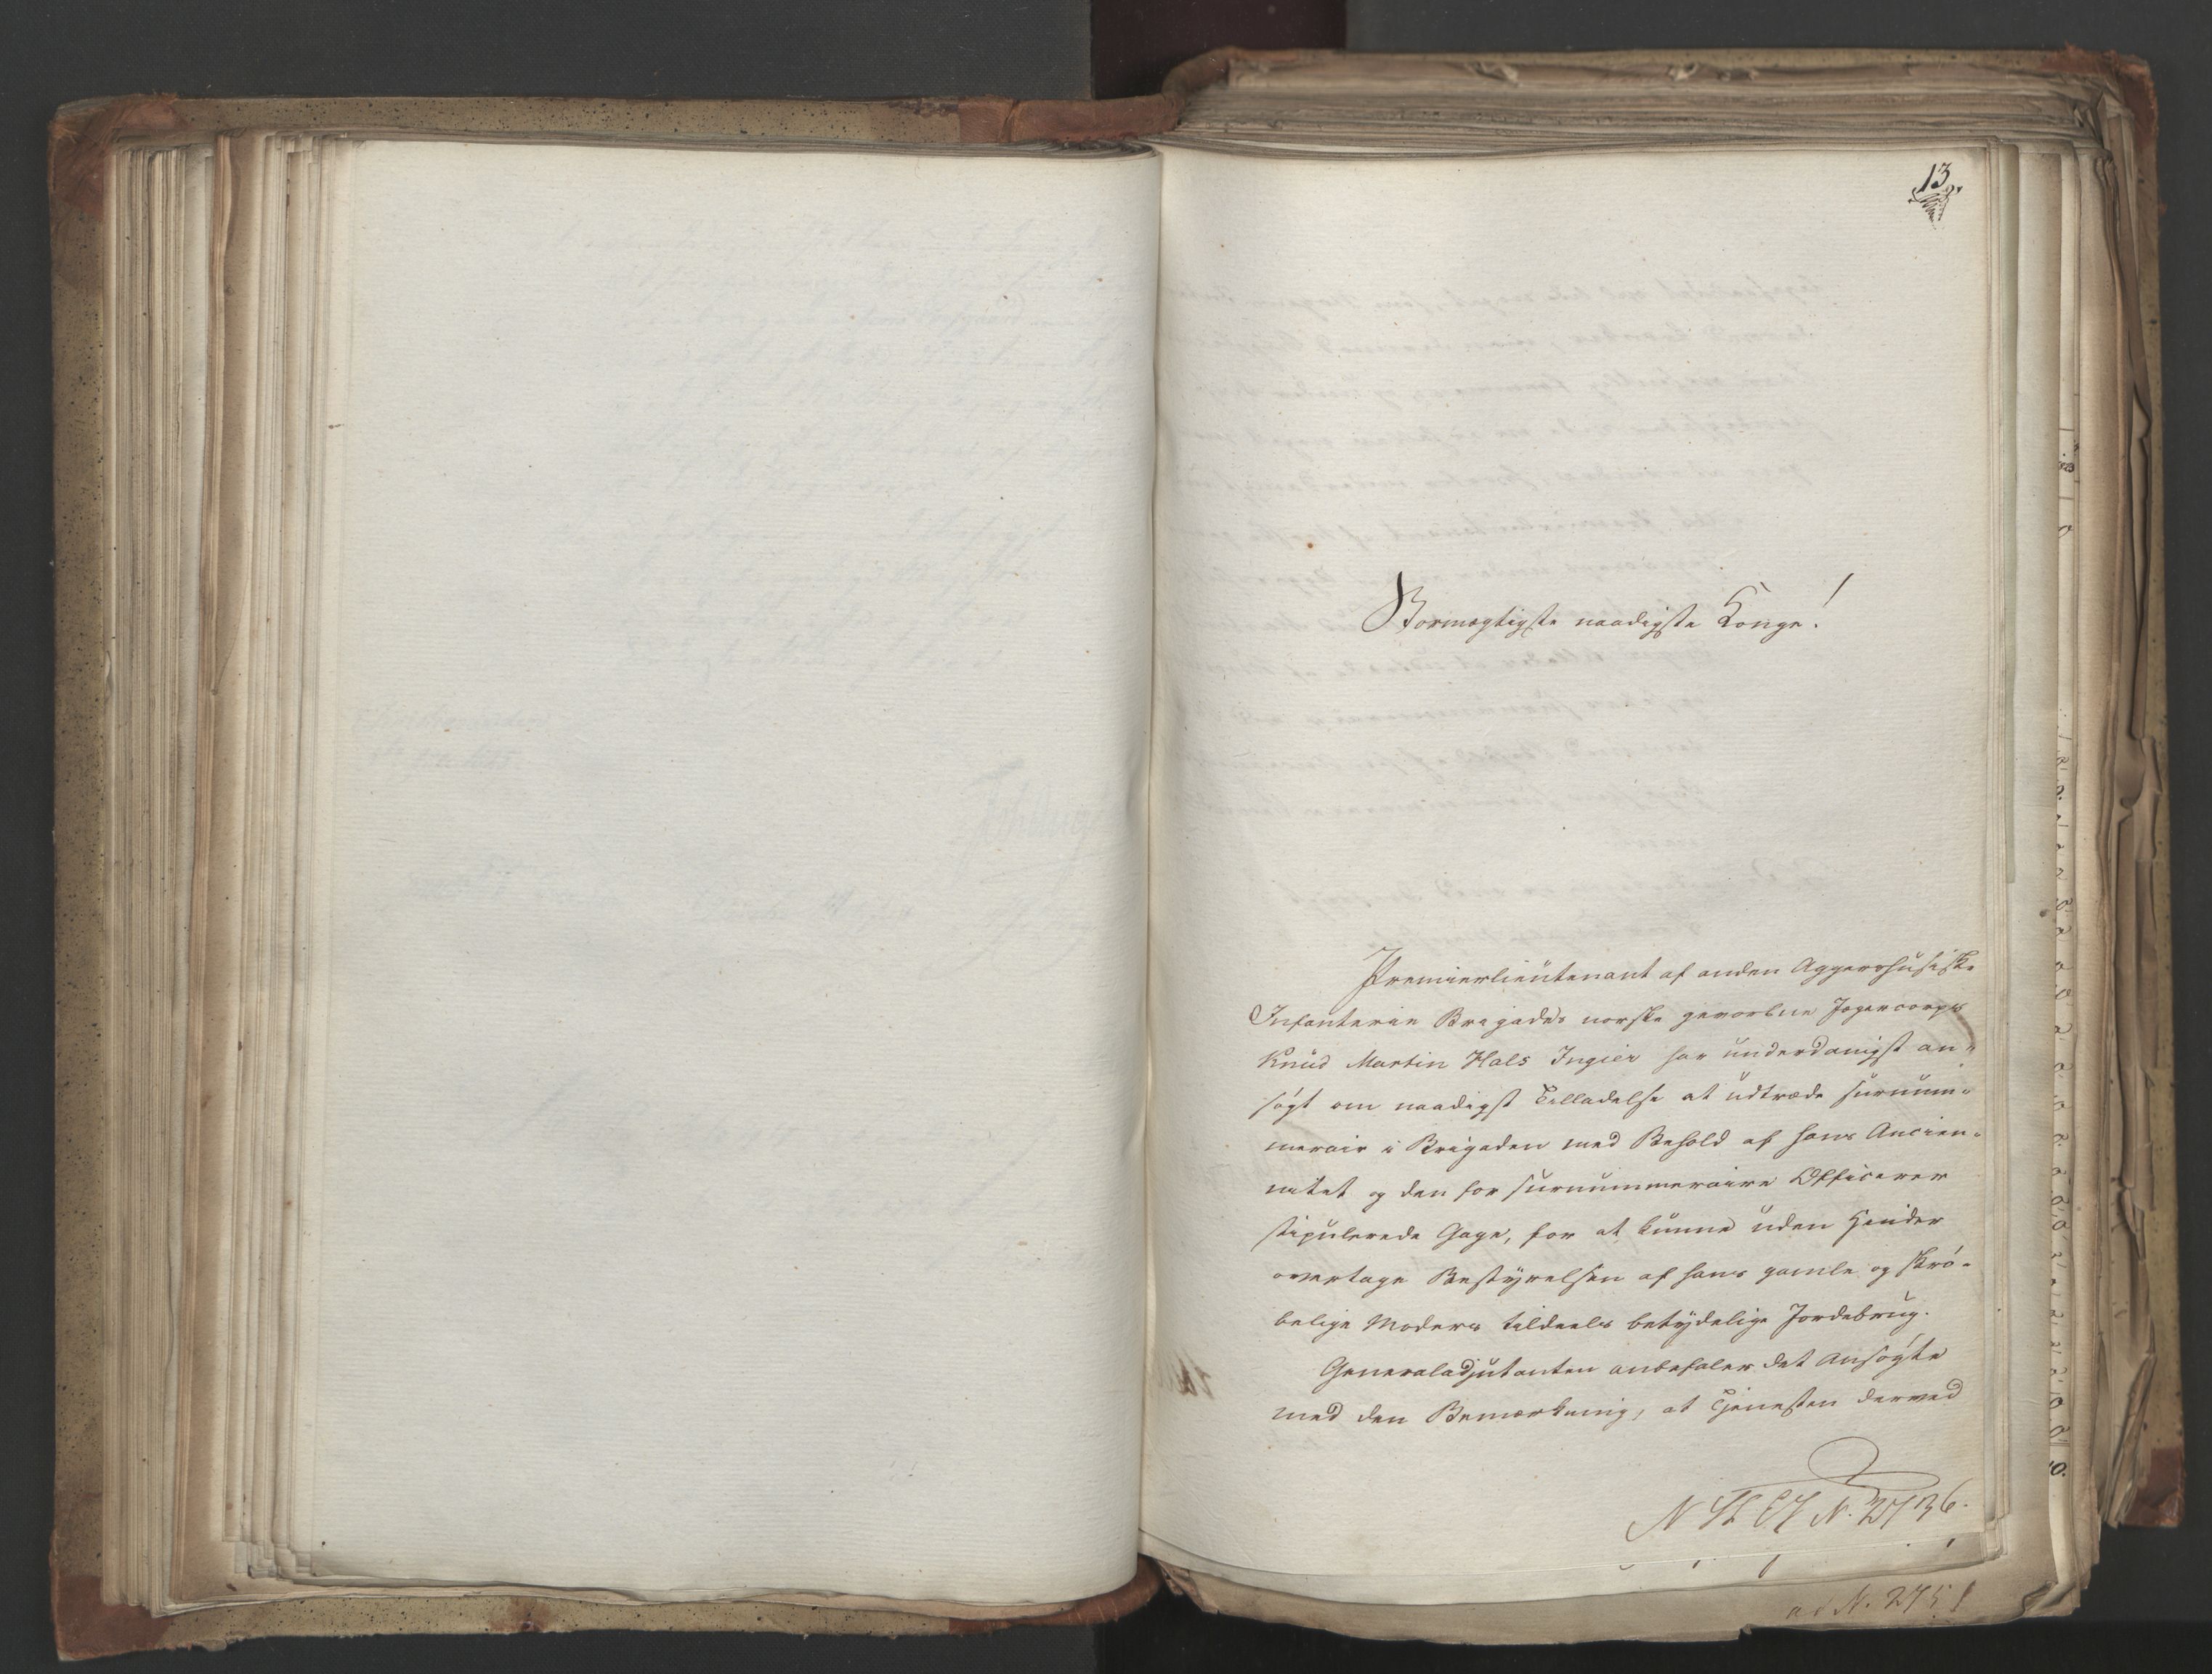 13.
Stormægtigste naadigste Konge!
Premierlieutenant af anden Aggershusiske
Infanterie Brigades norske gevorbne Jægercorps
Knud Martin Hals Ingier har underdanigst an-
søgt om naadigst Tilladelse at udtræde surnum-
merair i Brigaden med Behold af hans Ancien-
netet og den for surnummeraire Officerer
stipulerede Gage, for at kunne uden Hinder
overtage Bestyrelsen af hans gamle og skrø-
belige Moders tildeels betydelige Jordebrug.
Generaladjutanten anbefaler det Ansøgte
med den Bemærkning, at Tjenesten derved
ad N. 275